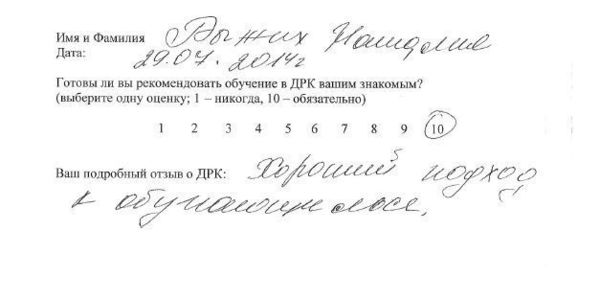 Имя и Фамилия Рыжих Наталия
Дата: 29.07.2014г
Готовы ли вы рекомендовать обучение в ДРК вашим знакомым?
(выберите одну оценку; 1 – никогда, 10 – обязательно)
1 2 3 4 5 6 7 8 9 10
Ваш подробный отзыв о ДРК: Хороший подход
к обучающимся.